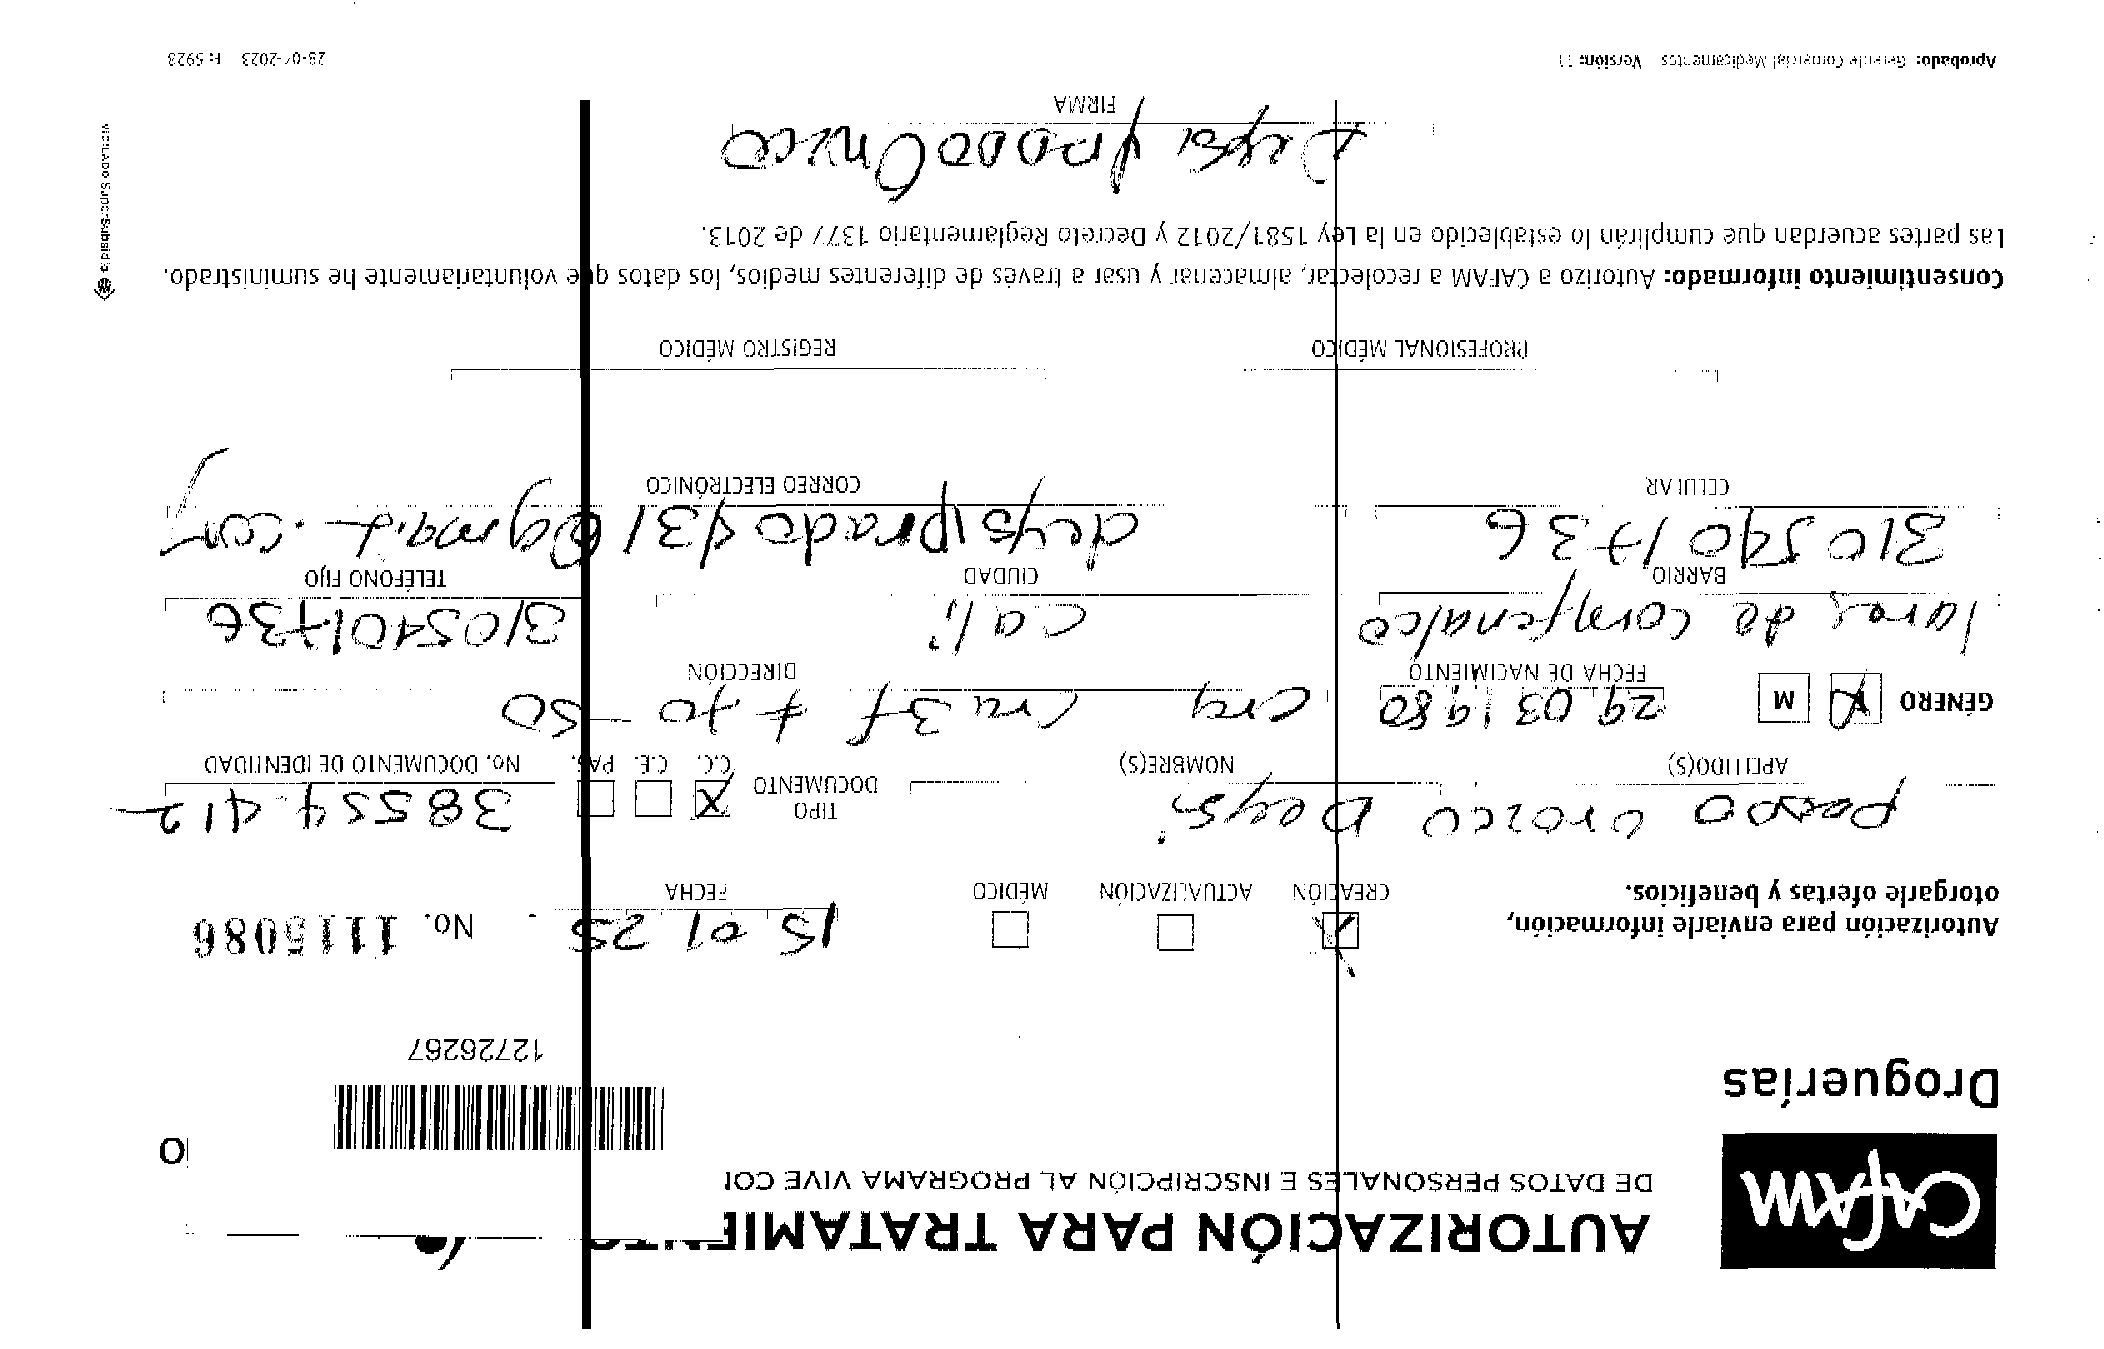 CAFAM
Droguerías
AUTORIZACIÓN PARA TRATAMIE
DE DATOS PERSONALES E INSCRIPCIÓN AL PROGRAMA VIVE CO
12726267
Autorización para enviarle información,
otorgarle ofertas y beneficios.
CREACIÓN ACTUALIZACIÓN MÉDICO
15 01 25
FECHA
No. 1115086
Prado Orozco Deysi
APELLIDO(S) NOMBRE(S)
TIPO DOCUMENTO X C.C. C.E. PAS.
38554412
No. DOCUMENTO DE IDENTIDAD
GÉNERO X M
29 03 1980
FECHA DE NACIMIENTO
cra 3f # 70 - 50
DIRECCIÓN
lares de comfenalco
BARRIO
cali
CIUDAD
3105401736
TELÉFONO FIJO
3105401736
CELULAR
deysiprado431@gmail.com
CORREO ELECTRÓNICO
PROFESIONAL MÉDICO REGISTRO MÉDICO
Consentimiento informado: Autorizo a CAFAM a recolectar, almacenar y usar a través de diferentes medios, los datos que voluntariamente he suministrado.
Las partes acuerdan que cumplirán lo establecido en la Ley 1581/2012 y Decreto Reglamentario 1377 de 2013.
Deysi prado Orozco
FIRMA
Aprobado: Gerente Comercial Medicamentos Versión: 11
F: 5923
VIGILADO SuperSubsidio